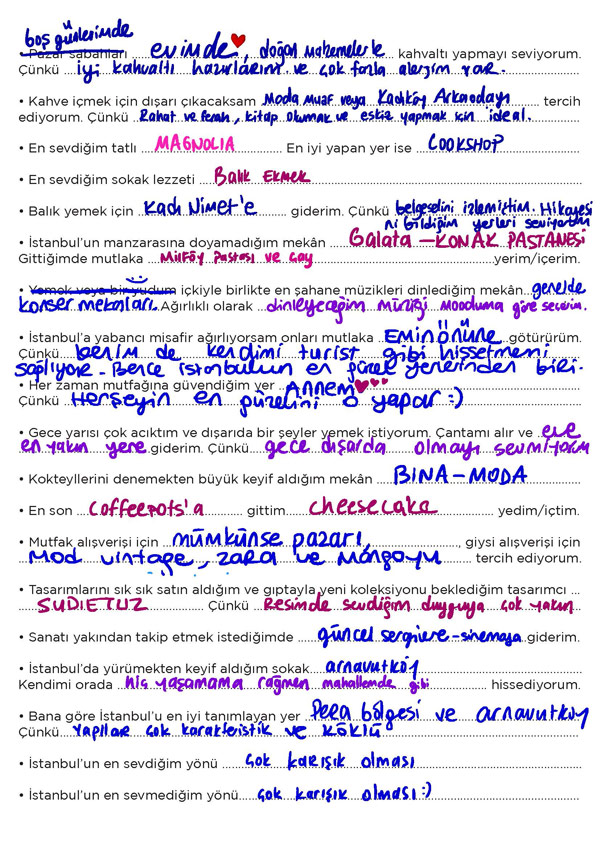 boş günlerimde
• Pazar sabahları ...evimde, doğan malzemelerle... kahvaltı yapmayı seviyorum.
Çünkü ...iyi kahvaltı hazırlarım ve çok fazla alerjim var.
• Kahve içmek için dışarı çıkacaksam Moda Muaf veya Kadıköy Arkaoda'yı tercih
ediyorum. Çünkü Rahat ve ferah, kitap okumak ve eskiz yapmak için ideal.
• En sevdiğim tatlı ...MAGNOLIA... En iyi yapan yer ise ...COOKSHOP
• En sevdiğim sokak lezzeti ...Balık Ekmek
• Balık yemek için ...Kadı Nimet'e... giderim. Çünkü belgeselini izlemiştim. Hikayesi
ni bildiğim yerleri seviyorum
• İstanbul'un manzarasına doyamadığım mekân ...Galata – KONAK PASTANESİ
Gittiğimde mutlaka ...Milföy Pastası ve çay...yerim/içerim.
• Yemek veya bir yudum içkiyle birlikte en şahane müzikleri dinlediğim mekân...genelde
konser mekanları. Ağırlıklı olarak ...dinleyeceğim müziği mooduma göre seçerim.
• İstanbul'a yabancı misafir ağırlıyorsam onları mutlaka ...EMİNÖNÜNE...götürürüm.
Çünkü...benim de kendimi turist gibi hissetmemi
sağlıyor. Bence istanbulun en güzel yerlerinden biri.
• Her zaman mutfağına güvendiğim yer ...ANNEM
Çünkü ...Herşeyin en güzelini o yapar :)
• Gece yarısı çok acıktım ve dışarıda bir şeyler yemek istiyorum. Çantamı alır ve eve
en yakın yere giderim. Çünkü...gece dışarda olmayı sevmiyorum
• Kokteyllerini denemekten büyük keyif aldığım mekân ...BINA – MODA
• En son ...Coffeepots'a... gittim...cheesecake... yedim/içtim.
• Mutfak alışverişi için ...mümkünse pazarı,..., giysi alışverişi için
...Mod vintage, zara ve Mangoyu... tercih ediyorum.
• Tasarımlarını sık sık satın aldığım ve gıptayla yeni koleksiyonu beklediğim tasarımcı ...
...SUDIETUZ... Çünkü ...Resimde sevdiğim duyguya çok yakın
• Sanatı yakından takip etmek istediğimde ...güncel sergilere – sinemaya giderim.
• İstanbul'da yürümekten keyif aldığım sokak...arnavutköy
Kendimi orada ...hiç yaşamama rağmen mahallemde gibi... hissediyorum.
• Bana göre İstanbul'u en iyi tanımlayan yer ...Pera bölgesi ve arnavutköy
Çünkü...Yapılar çok karakteristik ve köklü
• İstanbul'un en sevdiğim yönü ...çok karışık olması
• İstanbul'un en sevmediğim yönü...çok karışık olması :)